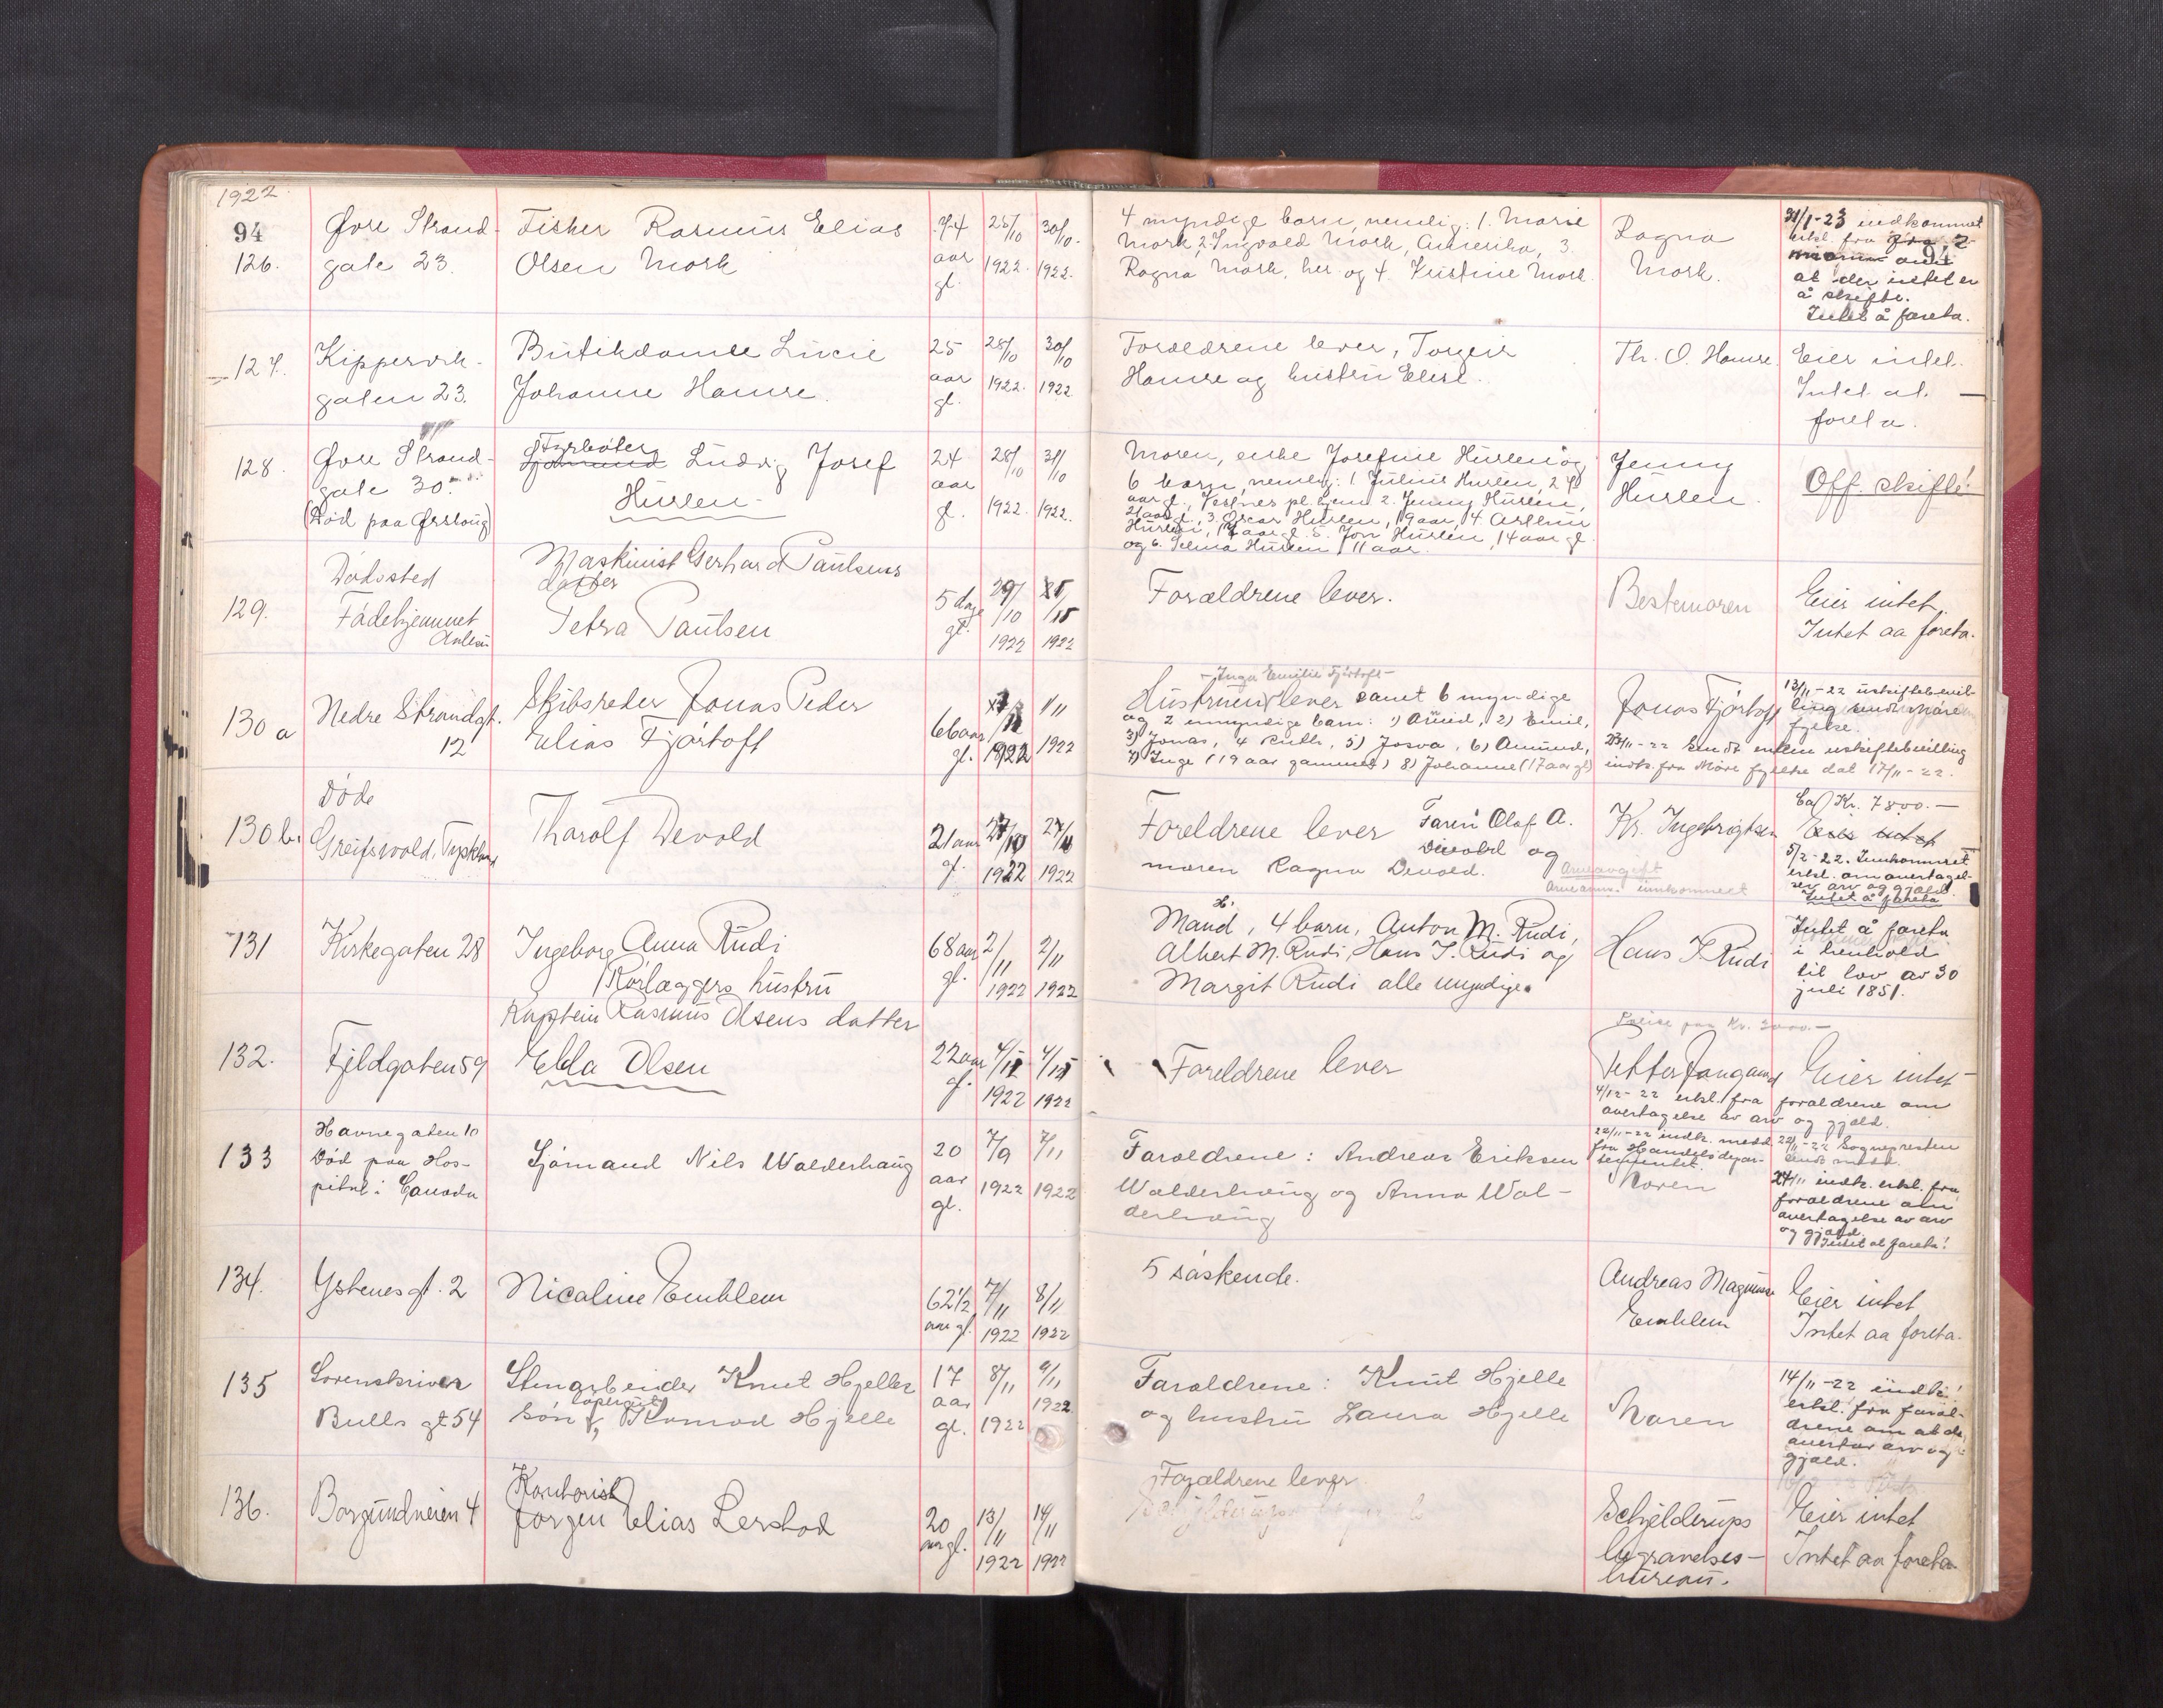 1922
94
126. Øvre Strand-
gate 23.
Fisker Rasmus Elias
Olsen Mork
74
aar
gl.
25/10
1922.
30/10.
1922.
4 myndige barn, nemlig: 1. Marie
Mork, 2. Ingvald Mork, Amerika, 3.
Ragna Mork, her og 4. Kristine Mork.
Ragna
Mork.
31/1-23 indkommet
erkl. fra
94
at der intet er
å skifte.
Intet å foreta.
127. Kippervik-
gaten 23.
Butikdame Lucie
Johanne Hamre.
25
aar
gl.
28/10
1922.
30/10
1922
Forældrene lever, Torgeir
Hamre og hustru Elise.
Th. O. Hamre
Eier intet.
Intet at
foreta.
128. Øvre Strand-
gate 30.
(Død paa Ørsloug)
Fyrbøter
Sjømand Ludvig Josef
Huslen
24
aar
gl.
28/10
1922.
31/10
1922.
Moren, enke Josefine Huslen og
6 barn, nemlig: 1 Julius Huslen, 24
aar gl., Vestnes pl. hjem 2. Jenny Huslen,
21 aar gl., 3. Oscar Huslen, 19 aar, 4.
Huslen, 17 aar gl. 5. Jon Huslen, 14 aar gl
og 6. Selma Huslen 11 aar.
Jenny
Huslen.
Off. skifte!
129. Dødssted
Fødehjemmet
Maskinist Gerhard Paulsens
datter
Petra Paulsen
5 dage
gl.
29/10
1922
1922
Forældrene lever.
Bestemoren
Eier intet.
Intet aa foreta.
130 a Nedre Strandgt.
12
Skibsreder Jonas Peder
Elias Fjørtoft
66 aar
gl.
1922
1/11
1922
- Inga Emilie Fjørtoft -
Hustruen lever samt 6 myndige
og 2 umyndige barn: 1) Auund, 2) Emil,
3) Jonas, 4 Ruth, 5) Josva, 6) Amund,
7) Inge (19 aar gammel) 8) Johanne (17 aar gl)
Jonas Fjørtoft
13/11-22 uskiftebevil-
ling sendt Møre
fylke.
23/11-22 sendt enken uskiftebevilling
indk. fra Møre fylke dat 17/11-22.
130 b. Døde
Greifswald, Tyskland
Tharolf Devold
21 aar
gl.
1922
1922
Foreldrene lever Faren Olaf A.
Devold og
moren Ragna Devold.
Arveavgift
innkommet
Kr. Ingebrigtsen
Ca. Kr. 7800.-
Eier intet
5/2-22. Innkommet
erkl. om overtagel-
sen arv og gjæld.
Intet å foreta
131 Kirkegaten 28
Ingeborg Anna Rudi
Rørlæggers hustru
68 aar
gl.
2/11
1922
2/11
1922
Mand, 4 barn, Anton M. Rudi,
Albert M. Rudi, Hans J. Rudi og
Margit Rudi alle myndige.
Hans J Rudi
Intet å foreta
i henhold
til lov av 30
juli 1851.
132. Fjeldgaten 59
Kaptein Rasmus Olsens datter
Ebba Olsen
22 aar
gl.
1922
1922
Foreldrene lever
Polise paa Kr. 2000.-
Petter Jangaard
Eier intet
4/12-22 erkl. fra forældrene om
overtagelse av arv og gjæld.
133 Havnegaten 10
Død paa Hos-
pital i Canada
Sjømand Nils Walderhaug
20
aar
gl.
7/9
1922
7/11
1922
Forældrene: Andreas Eriksen
Walderhaug og Anna Wal-
derhaug
22/11-22 indk. medd.
fra Handelsdepar-
tementet.
Moren
22/11-22 Sognepresten
sendt medd.
24/11 indk. erkl. fra
forældrene om
overtagelse av arv
og gjæld.
Intet at foreta!
134. Ystenes gt. 2
Nicoline Emblem
62 1/2
aar gl.
7/11
1922
8/11
1922
5 søskende.
Andreas Magnus
Emblem
Eier intet
Intet aa foreta.
135 Sorenskriver
Bulls gt 54
Stenarbeider Knut Hjelles
søn, løpergut Konrad Hjelle
17
aar
gl.
8/11
1922
9/11
1922.
Forældrene: Knut Hjelle
og hustru Laura Hjelle
Moren
14/11-22 indk.
erkl. fra foræl-
drene om at de
overtar arv og
gjæld.
136. Borgundveien 4
Kontorist
Jørgen Elias Lerstad
20
aar gl.
13/11
1922
14/11
1922
Forældrene lever.
Schjelderups
begravelses-
bureau.
Eier intet
Intet aa foreta